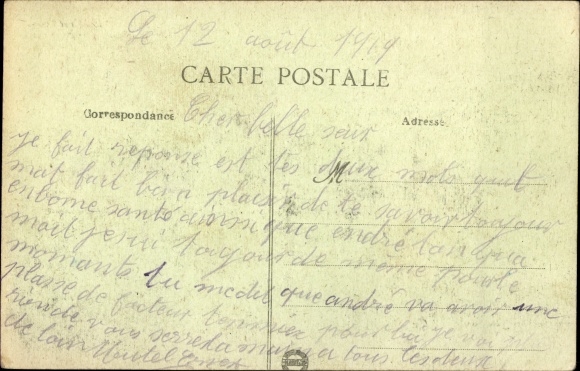 Le 12 août 1919
CARTE POSTALE
Correspondance
Adresse
Cher belle seur
je fait reponse est tes deux mots quil
mat fait bien plaisir de te savoir toujour
en bone santé ainsi que andré
moit je sui toujour de meme pour le
momante tu me dit que andré va avoir une
plasse de facteur pour lui je
vous serre la main a tous les deux
de loin